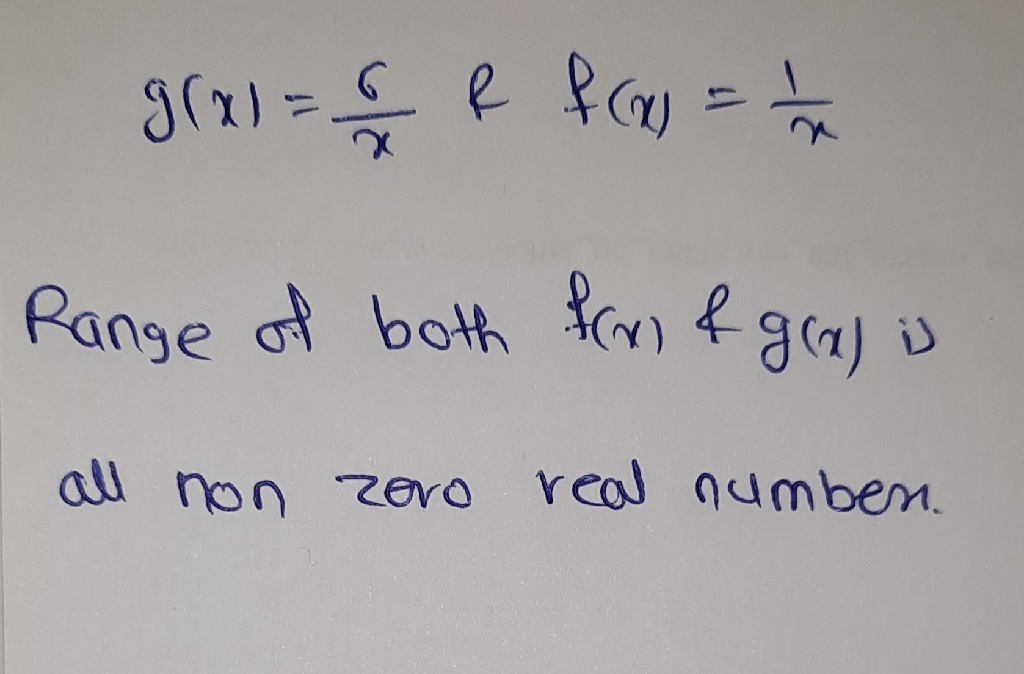 g(x) = 6/x & f(x) = 1/x
Range of both f(x) & g(x) is
all non zero real number.